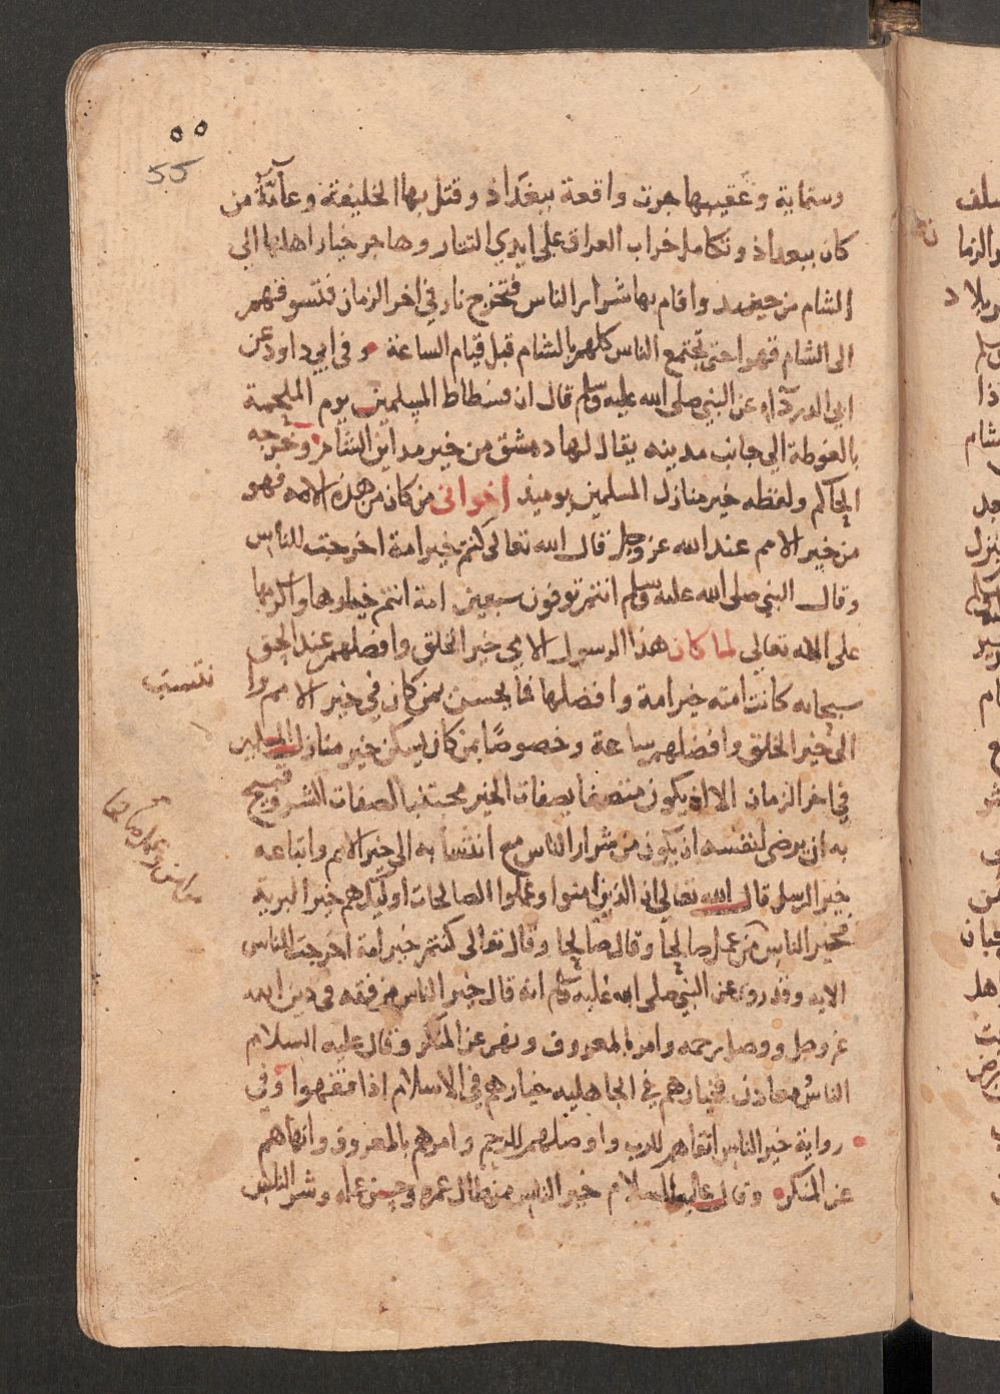 ٥٥
55
وستماية وعقيبها جرت واقعة ببغداذ وقتل بها الخليفة وعامة من
كان ببغداذ وتكامل خراب العراق على ايدي التتار وهاجر خيار اهلها الى
الشام من حينيد واقام بها شرار الناس فتخرج نار في اخر الزمان فتسوقهم
الى الشام قهرا حتى تجتمع الناس كلهم بالشام قبل قيام الساعة وفي ابي داود عن
ابي الدرداء عن النبي صلى الله عليه وسلم قال ان فسطاط المسلمين يوم الملحمة
بالغوطة الى جانب مدينه يقال لها دمشق من خير مداين الشام وخرجه
الحاكم ولفظه خير منازل المسلمين يوميذ اخوانى من كان من هذه الامه فهو
من خير الامم عند الله عز وجل قال الله تعالى كنتم خير امة اخرجت للناس
وقال النبي صلى الله عليه وسلم انتم توفون سبعين امة انتم خيارها واكرمها
على الله تعالى لما كان هذا الرسول الامي خير الخلق وافضلهم عند الحق
سبحانه كانت امته خير امة وافضلها فما يحسن بمن كان في خير الامم وا
نتسب
الى خير الخلق وافضلهم ساعة وخصوصًا بمن كان يسكن خير منازل المسلمين
في اخر الزمان الا ان يكون متصفا بصفات الخير مجتنبا لصفات الشر وقبيح
به ان يرضى لنفسه ان يكون من شرار الناس مع انتسابه الى خير الامم واتباعه
خير الرسل قال الله تعالى ان الذين امنوا وعملوا الصالحات اوليك هم خير البرية
فخير الناس من عمل صالحا وقال تعالى كنتم خير امة اخرجت للناس
الايه وقد روى عن النبي صلى الله عليه وسلم انه قال خير الناس من فقه في دين الله
عز وجل ووصل رحمه وامر بالمعروف ونهى عن المنكر وقال عليه السلام
الناس معادن فخيارهم في الجاهليه خيارهم في الاسلام اذا فقهوا وفي
رواية خير الناس اتقاهم للرب واوصلهم للرحم وامرهم بالمعروف وانهاهم
عن المنكر وقال عليه السلام خير الناس من طال عمره وحسن عمله وشر الناس